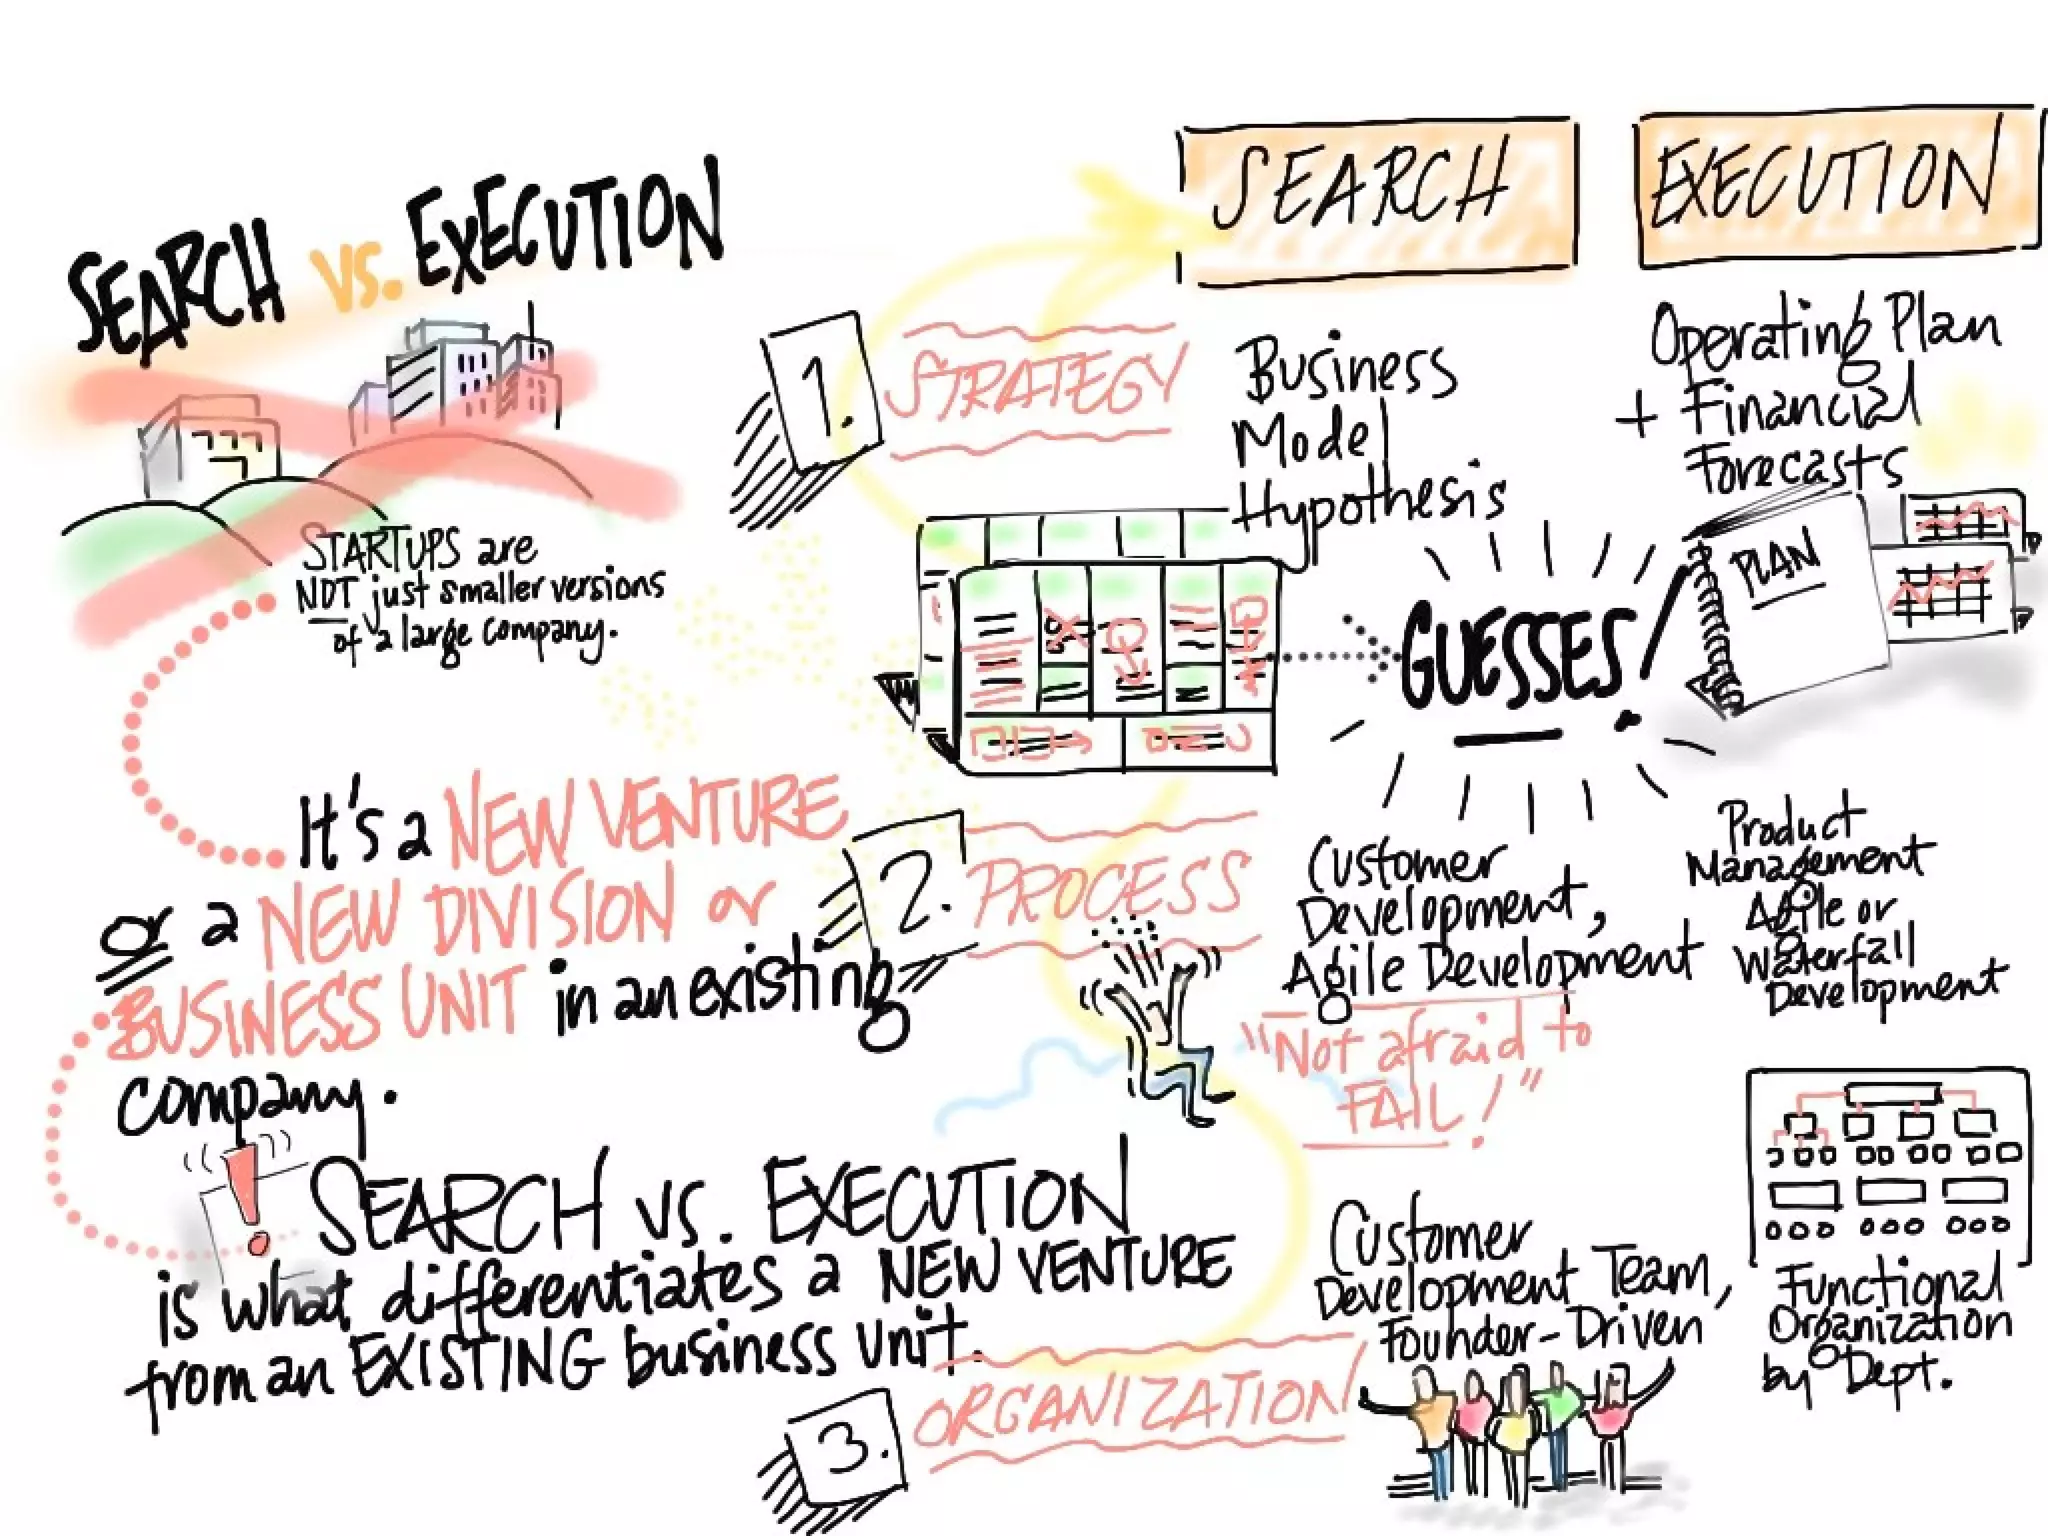 SEARCH vs. EXECUTION
STARTUPS are
NOT just smaller versions
of a large company.
It's a NEW VENTURE
or a NEW DIVISION or
BUSINESS UNIT in an existing
company.
!
SEARCH vs. EXECUTION
is what differentiates a NEW VENTURE
from an EXISTING business unit.
SEARCH
EXECUTION
1.
STRATEGY
Business
Model
Hypothesis
GUESSES!
Operating Plan
+ Financial
Forecasts
PLAN
2.
PROCESS
Customer
Development,
Agile Development
"Not afraid to
FAIL!"
Product
Management
Agile or
Waterfall
Development
3.
ORGANIZATION
Customer
Development Team,
Founder-Driven
Functional
Organization
by Dept.